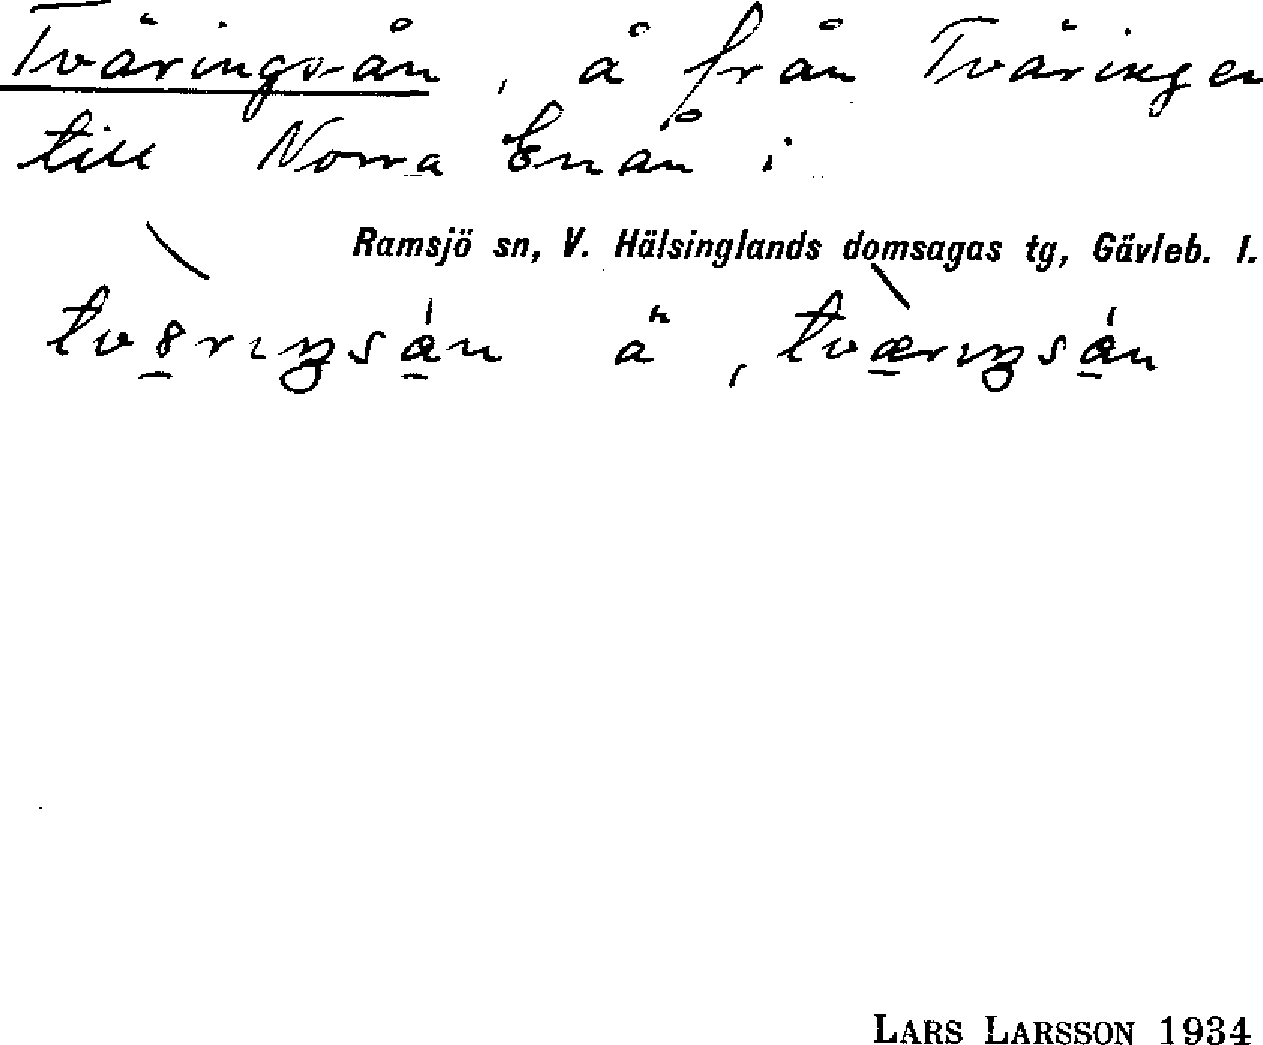 Tväringsån, å från Tväringen
till Norra Enån i
Ramsjö sn, V. Hälsinglands domsagas tg, Gävleb. l.
ä
LARS LARSSON 1934